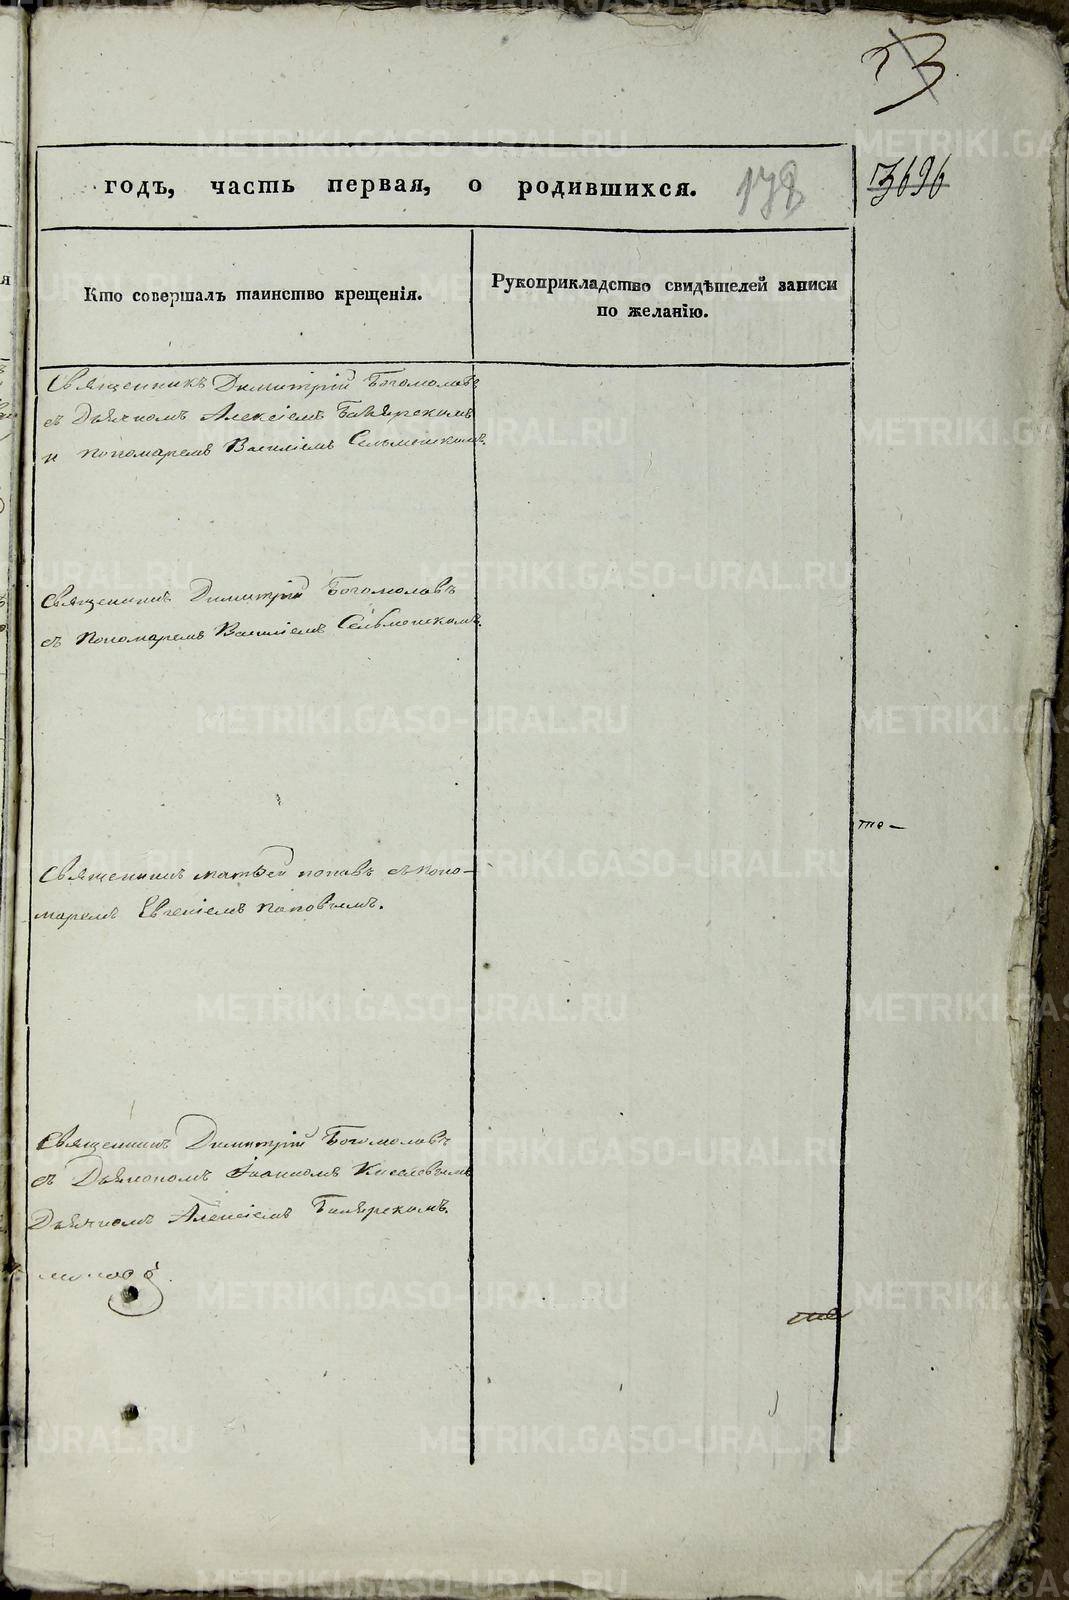 годъ, часть первая, о родившихся.
178
3696
Кто совершалъ таинство крещенія.
Рукоприкладство свидѣтелей записи
по желанію.
Священникъ Димитрій Богомоловъ
съ Дьячкомъ Алексіемъ
и пономаремъ Василіемъ
Священникъ Димитрій Богомоловъ
съ Пономаремъ Василіемъ
Священникъ Матѳей Поповъ съ поно-
маремъ Евгеніемъ Поповымъ.
Священникъ Димитрій Богомоловъ
съ Діакономъ Іоанномъ Киселевымъ
Дьячкомъ Алексіемъ
METRIKI.GASO-URAL.RU